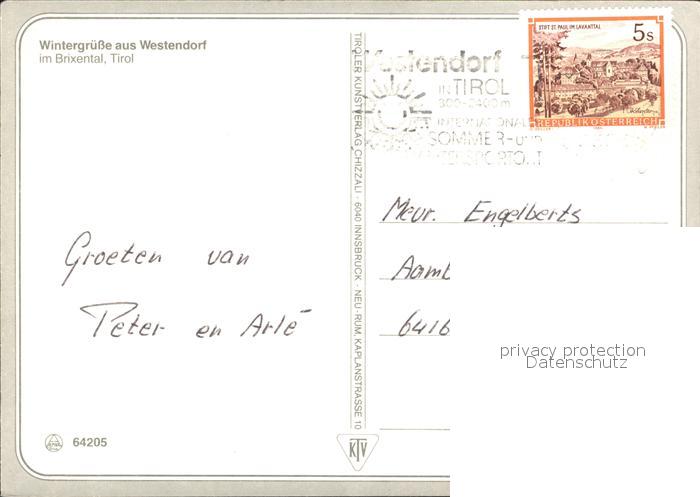 Wintergrüße aus Westendorf
im Brixental, Tirol
STIFT ST. PAUL IM LAVANTTAL
5s
REPUBLIK ÖSTERREICH
Westendorf
IN TIROL
800-2400m
INTERNATIONALE
SOMMER- und
WINTERSPORTORT
TIROLER KUNSTVERLAG CHIZZALI · 6040 INNSBRUCK - NEU-RUM, KAPLANSTRASSE 10
Groeten van
Peter en Arlé
Mevr. Engelberts
Aamb
6416
privacy protection
Datenschutz
64205
KTV